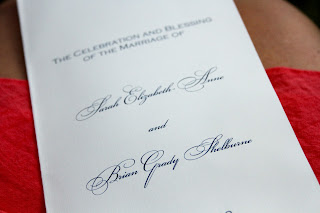 The Celebration and Blessing
of the Marriage of
Sarah Elizabeth Anne
and
Brian Grady Shelburne